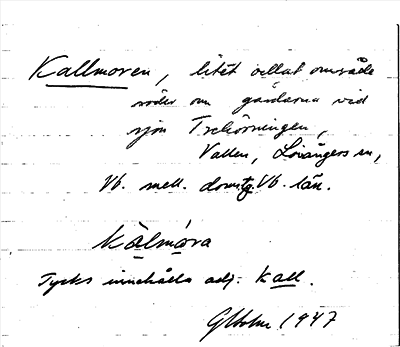 Kallmoren, litet odlat område
söder om gårdarna vid
sjön
Vallen, Lövångers sn,
Vb. mell. domtg. Vb. län.
Kalmora
Tycks innehålla adj. kall.
GHolm 1947